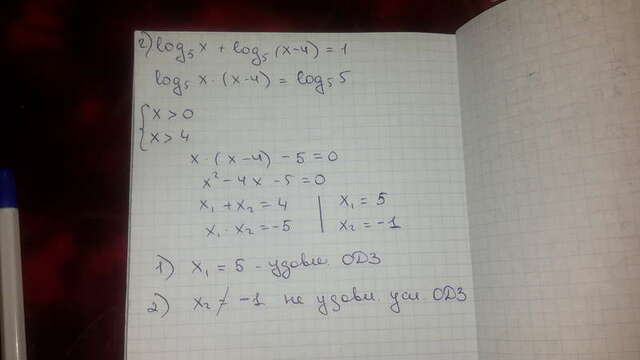 2) log₅x + log₅(x-4) = 1
log₅x · (x-4) = log₅5
{ x > 0
x > 4
x · (x-4) - 5 = 0
x² - 4x - 5 = 0
x₁ + x₂ = 4 | x₁ = 5
x₁ · x₂ = -5 | x₂ = -1
1) x₁ = 5 - удовл. ОДЗ
2) x₂ ≠ -1 не удовл. усл. ОДЗ